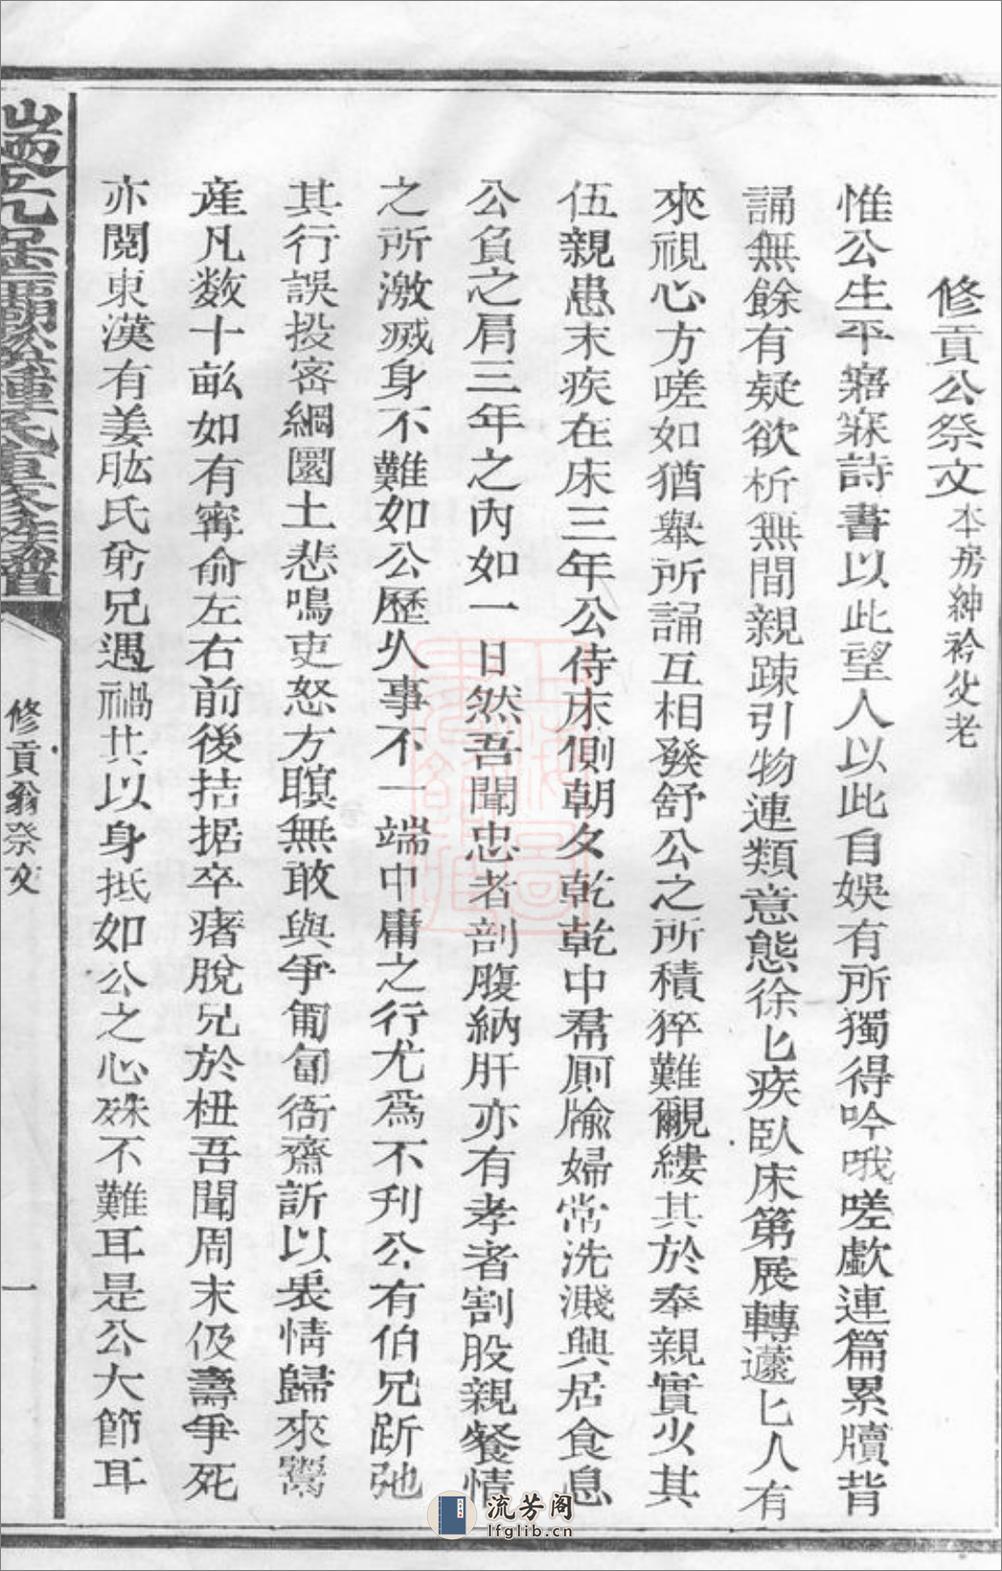 修貢公祭文 本房紳衿父老
惟公生平寤寐詩書以此望人以此自娛有所獨得吟哦嗟歔連篇累牘背
誦無餘有疑欲析無間親踈引物連類意態徐匕疾臥床第展轉蘧匕人有
來視心方嗟如猶舉所誦互相發舒公之所積猝難覼縷其於奉親實火其
伍親患末疾在床三年公侍床側朝夕乾乾中羣厠牏婦常洗濺興居食息
公負之肩三年之內如一日然吾聞忠者剖腹納肝亦有孝者割股親餐情
之所激滅身不難如公歷久事不一端中庸之行尤為不刋公有伯兄跅弛
其行誤投密綱圜土悲鳴吏怒方瞑無敢與爭匍匐衙齋訢以哀情歸來鬻
產凡数十畝如有甯俞左右前後拮据卒瘏脫兄於杻吾聞周末伋壽爭死
亦閱東漢有姜肱氏弟兄遇禍共以身抵如公之心殊不難耳是公大節耳
修貢翁祭文
一
流芳阁
lfglib.cn